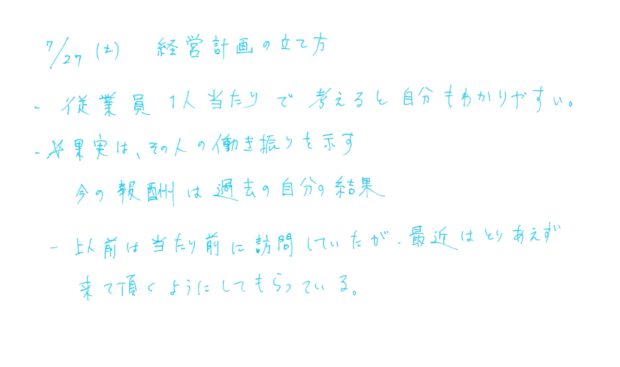 7/27 (土) 経営計画の立て方
- 従業員 1人当たりで考えると自分もわかりやすい。
- ※果実は、その人の働き振りを示す
今の報酬は過去の自分の結果
- 以前は当たり前に訪問していたが、最近はとりあえず
来て頂くようにしてもらっている。